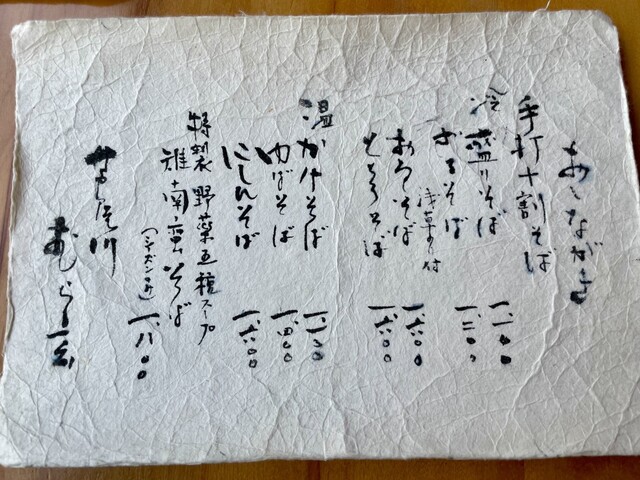 おしながき
手打十割そば
冷 盛りそば 一、一〇〇
ざるそば 一、二〇〇
浅草のり付
おろしそば 一、六〇〇
とろろそば 一、六〇〇
温 かけそば 一、一〇〇
ゆばそば 一、四〇〇
にしんそば 一、六〇〇
特製野菜五種スープ
雉南蛮そば 一、八〇〇
（シーズンのみ）
芦屋川